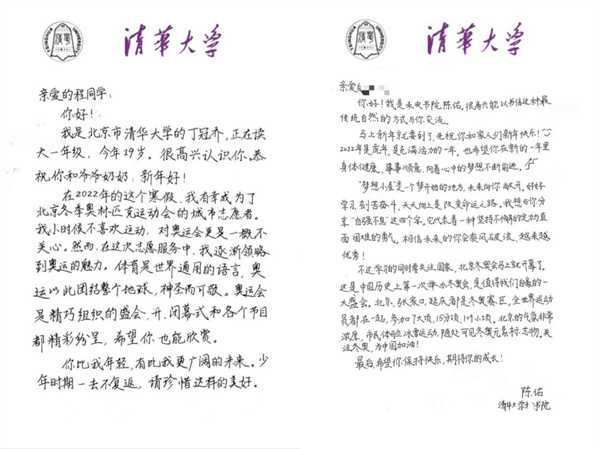 清華大学
亲爱的程同学:
你好!
我是北京市清华大学的丁冠乔,正在读
大一年级,今年19岁。很高兴认识你。恭
祝你和爷爷奶奶:新年好!
在2022年的这个寒假,我有幸成为了
北京冬季奥林匹克运动会的城市志愿者。
我小时候不喜欢运动,对奥运会更是一概不
关心。然而,在这次志愿服务中,我逐渐领略
到奥运的魅力。体育是世界通用的语言,奥
运以此团结整个地球,神圣而可敬。奥运会
是精巧组织的盛会,开、闭幕式和各个节目
都精彩纷呈,希望你也能欣赏。
你比我年轻,有比我更广阔的未来。少
年时期一去不复返,请珍惜这样的美好。
清華大学
亲爱的
你好!我是未央书院陈佑。很高兴能以书信这种最
传统自然的方式与你交流。
马上新年就要到了,先祝你和家人们新年快乐!
2022年是虎年,是充满活力的一年。也希望你在新的一年里
身体健康,事事顺意,向着心中的梦想不断前进。
"梦想小屋"是一个梦开始的地方,未来向你敞开。好好
学习,刻苦奋斗,天天向上是改变命运之路。我想与你分
享"自强不息"这四个字,它代表着一种坚持不懈的定力,直
面困难的勇气。相信未来的你会乘风破浪,越来越
优秀!
不过学习的同时要关注国家,北京冬奥会马上就开幕了。
这是中国历史上第一次举办冬奥会,是值得我们自豪的一
大盛会。北京,张家口,延庆都是冬奥赛区,全世界运动
员都在一起,参加7大项,15分项,109小项。北京的气氛非常
浓厚,市民体验冰雪运动,随处可见冬奥元素和标志物。关
注冬奥,为中国加油!
最后,希望你保持快乐,期待你的成长!
陈佑
清华大学 书院